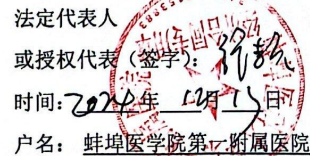 法定代表人
或授权代表（签字）：
时间：2024年 12月13日
户名：蚌埠医学院第一附属医院